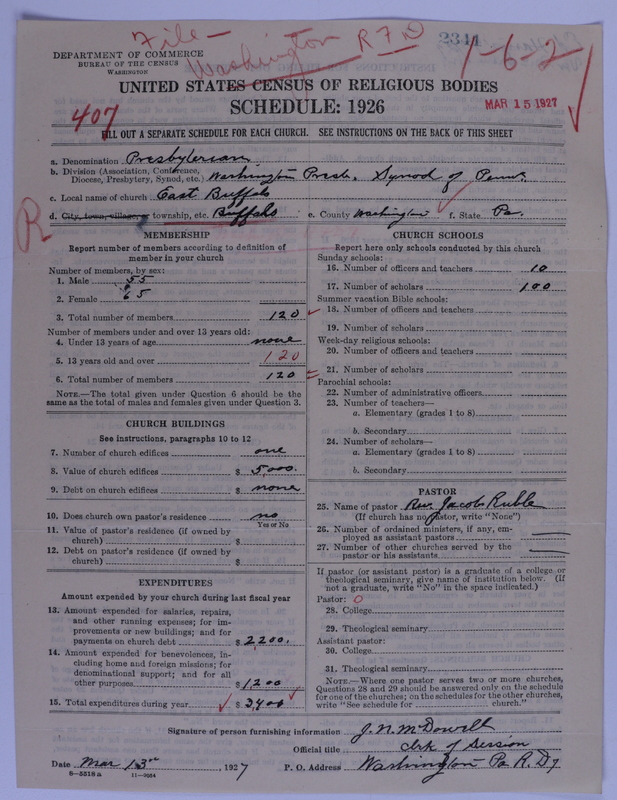 File —
Washington R F D
2344
1-6-2-1
DEPARTMENT OF COMMERCE
BUREAU OF THE CENSUS
WASHINGTON
UNITED STATES CENSUS OF RELIGIOUS BODIES
SCHEDULE: 1926
MAR 15 1927
407
FILL OUT A SEPARATE SCHEDULE FOR EACH CHURCH. SEE INSTRUCTIONS ON THE BACK OF THIS SHEET
a. Denomination Presbyterian
b. Division (Association, Conference, Diocese, Presbytery, Synod, etc.) Washington Presb. Synod of Penna.
c. Local name of church East Buffalo
d. City, town, village, or township, etc. Buffalo e. County Washington f. State Pa.
R
MEMBERSHIP
Report number of members according to definition of
member in your church
Number of members, by sex:
1. Male 55
2. Female 65
3. Total number of members 120
Number of members under and over 13 years old:
4. Under 13 years of age none
5. 13 years old and over 120
6. Total number of members 120
NOTE.—The total given under Question 6 should be the
same as the total of males and females given under Question 3.
CHURCH BUILDINGS
See instructions, paragraphs 10 to 12
7. Number of church edifices one
8. Value of church edifices $ 5,000.
9. Debt on church edifices $ none
10. Does church own pastor's residence no
Yes or No
11. Value of pastor's residence (if owned by
church) $
12. Debt on pastor's residence (if owned by
church) $
EXPENDITURES
Amount expended by your church during last fiscal year
13. Amount expended for salaries, repairs,
and other running expenses; for im-
provements or new buildings; and for
payments on church debt $ 2200.
14. Amount expended for benevolences, in-
cluding home and foreign missions; for
denominational support; and for all
other purposes $ 1200
15. Total expenditures during year $ 3400
CHURCH SCHOOLS
Report here only schools conducted by this church
Sunday schools:
16. Number of officers and teachers 10
17. Number of scholars 100
Summer vacation Bible schools:
18. Number of officers and teachers
19. Number of scholars
Week-day religious schools:
20. Number of officers and teachers
21. Number of scholars
Parochial schools:
22. Number of administrative officers
23. Number of teachers—
a. Elementary (grades 1 to 8)
b. Secondary
24. Number of scholars—
a. Elementary (grades 1 to 8)
b. Secondary
PASTOR
25. Name of pastor Rev. Jacob Ruble
(If church has no pastor, write "None")
26. Number of ordained ministers, if any, em-
ployed as assistant pastors
27. Number of other churches served by the
pastor or his assistants
If pastor (or assistant pastor) is a graduate of a college or
theological seminary, give name of institution below. (If
not a graduate, write "No" in the space indicated.)
Pastor: 0
28. College
29. Theological seminary
Assistant pastor:
30. College
31. Theological seminary
NOTE.—Where one pastor serves two or more churches,
Questions 28 and 29 should be answered only on the schedule
for one of the churches; on the schedules for the other churches,
write "See schedule for church."
Signature of person furnishing information J. N. McDowell
Official title Clrk of Session
Date Mar 13th, 1927 P. O. Address Washington Pa R. D 7
6—5518 a 11—9034